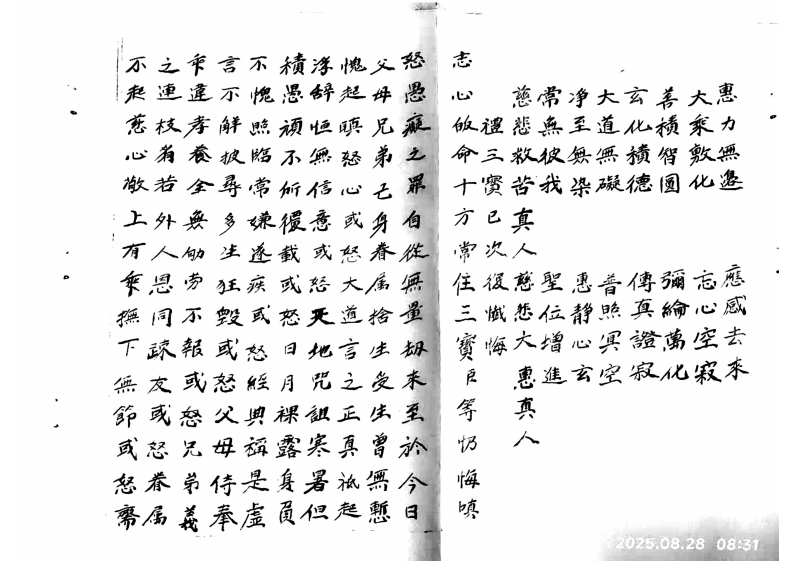 惠力無邊　應感去來
大乘敷化　志心空寂
善積智圓　彌綸萬化
玄化積德　傳真證寂
大道無礙　普照冥空
净至無染　惠静心玄
常無彼我　聖位增進
慈悲救苦真人　慈悲大惠真人
禮三寳已次復懺悔
志心皈命十方常住三寳臣等忉悔嗔
怒愚癡之罪自從無量劫来至於今日
父母兄弟己身眷属捨生受生曾無慙
愧起嗔怒心或怒大道言之正真祗起
浮辞恒無信意或怒天地咒詛寒暑但
積愚頑不所覆載或怒日月裸露身員
不愧照臨常嫌遂疾或怒經典稱是虚
言不解披尋多生狂毀或怒父母侍奉
乖違孝養全無劬劳不報或怒兄弟義
之連枝若外人恩同踈友或怒眷属
不起慈心敬上有乘撫下無節或怒齋
2025.08.28 08:31